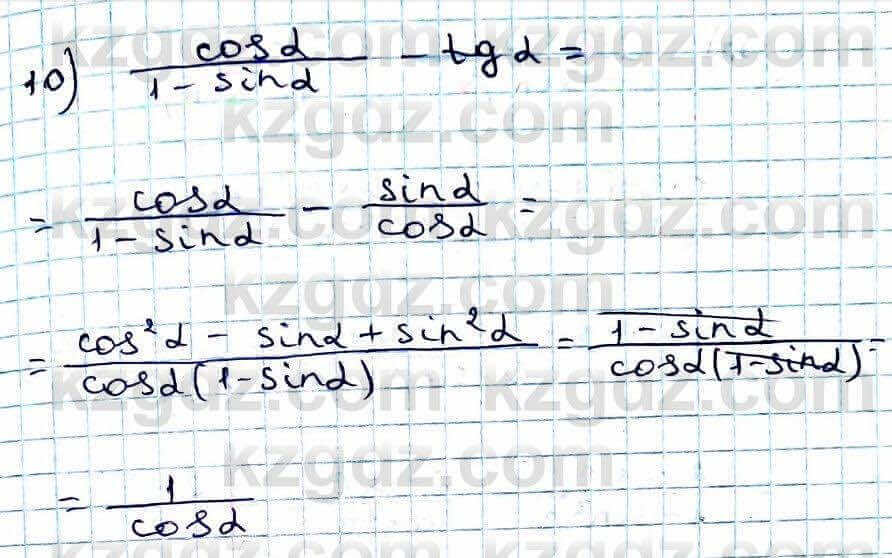 10) cosα / (1 - sinα) - tgα =
= cosα / (1 - sinα) - sinα / cosα =
= (cos²α - sinα + sin²α) / (cosα(1 - sinα)) = (1 - sinα) / (cosα(1 - sinα)) =
= 1 / cosα
kzgdz.com